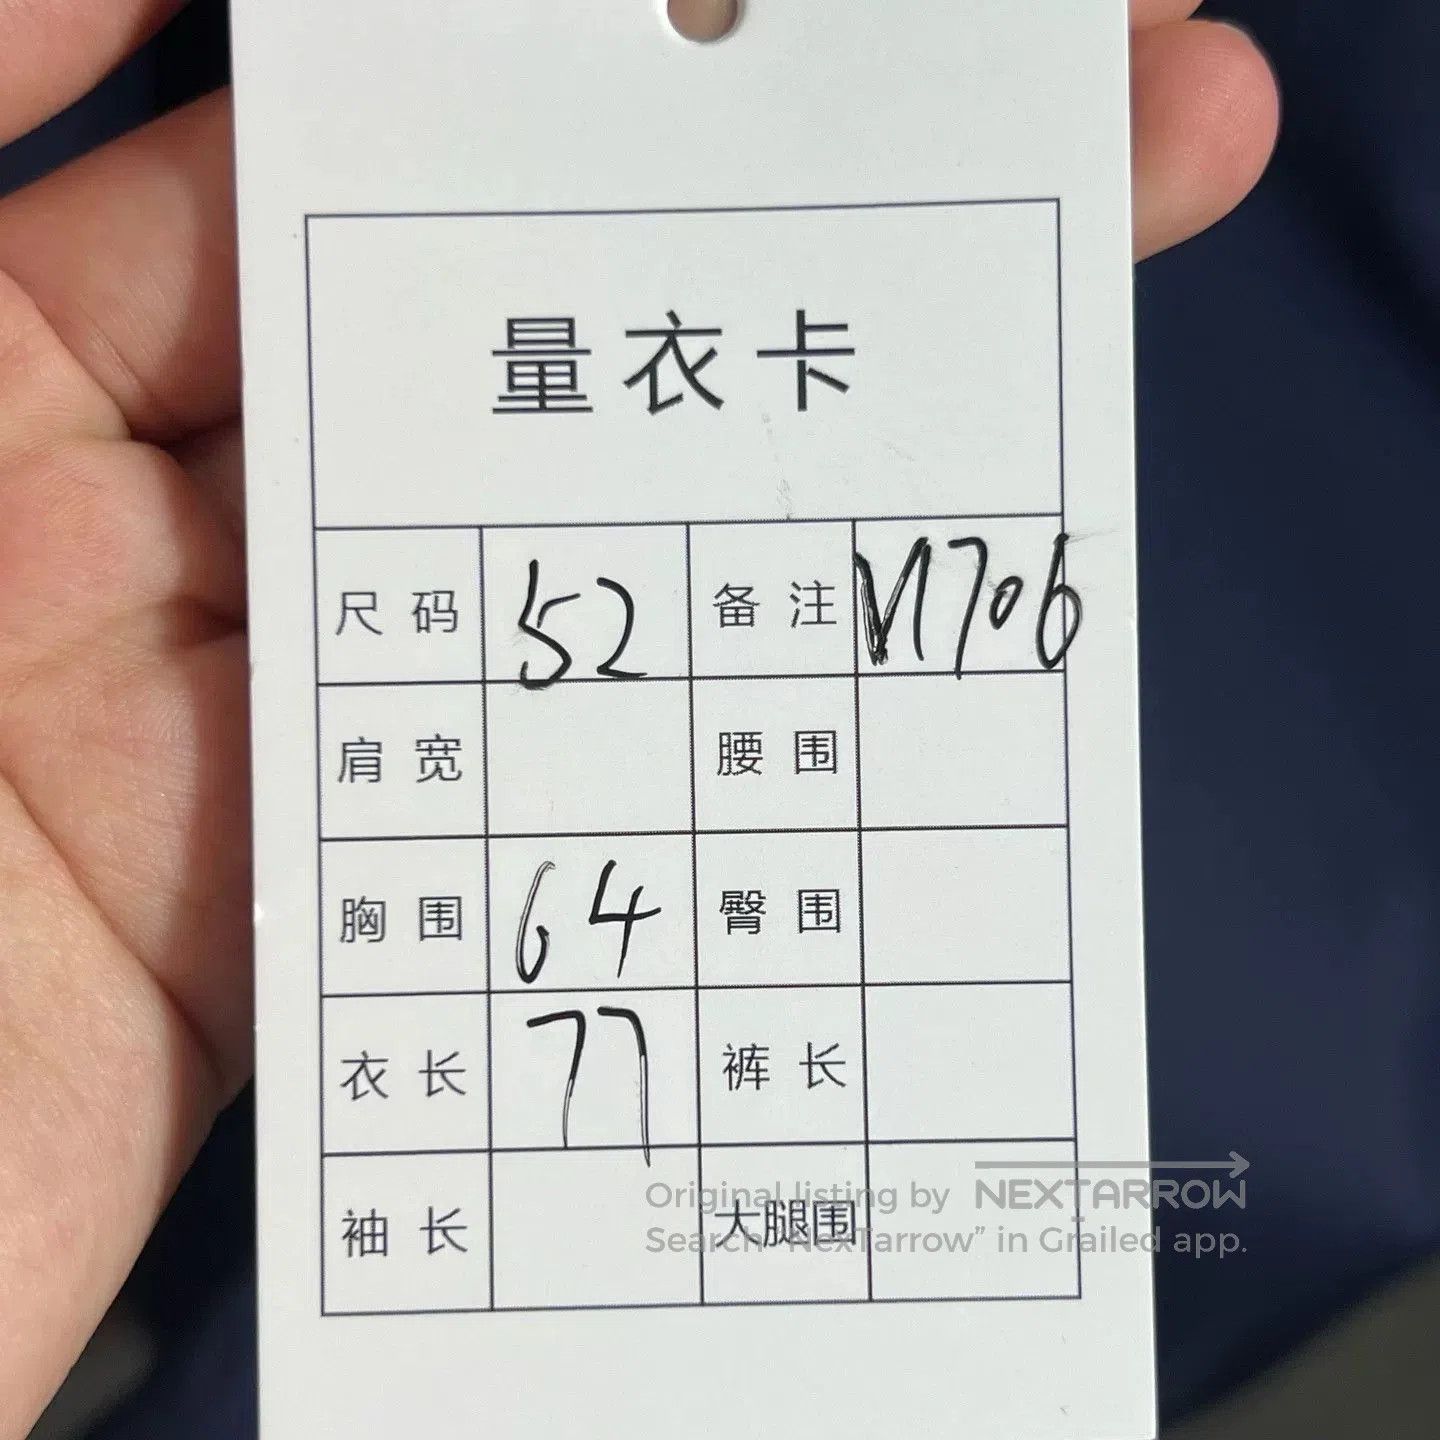 量衣卡
尺码 52 备注 V1706
肩宽 腰围
胸围 64 臀围
衣长 77 裤长
袖长 大腿围
Original listing by NEXTARROW
Search "NexTarrow" in Grailed app.